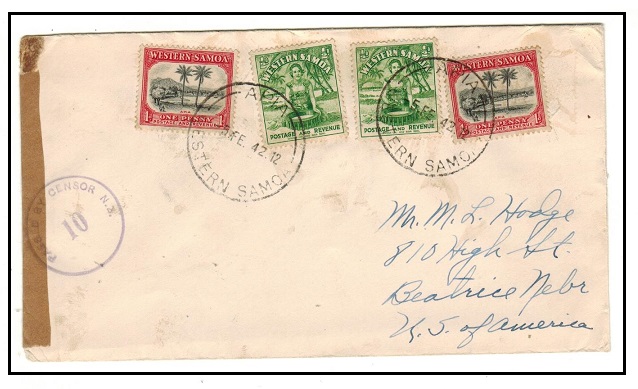 WESTERN SAMOA
1d
ONE PENNY
POSTAGE AND REVENUE
½d
WESTERN SAMOA
POSTAGE AND REVENUE
½d
WESTERN SAMOA
POSTAGE AND REVENUE
WESTERN SAMOA
ONE PENNY
POSTAGE AND REVENUE
1d
APIA
FE. 42.12
WESTERN SAMOA
APIA
FE. 42
WESTERN SAMOA
BY CENSOR N.Z.
10
Mr. M. L. Hodge
810 High St.
Beatrice Nebr
U.S. of America